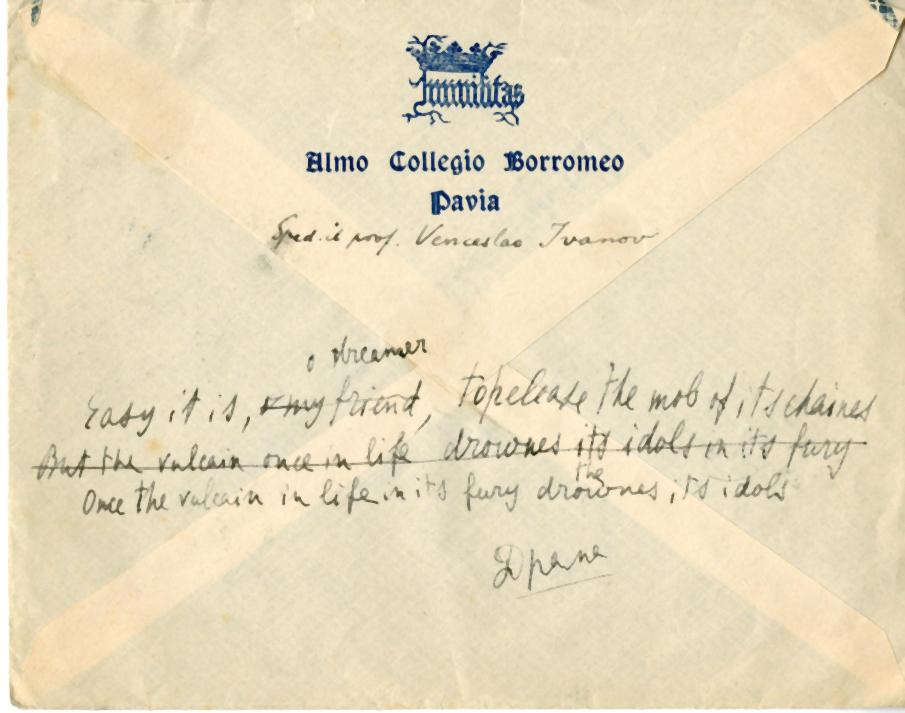 Humilitas
Almo Collegio Borromeo
Pavia
Sped. il prof. Venceslao Ivanov
o dreamer
Easy it is, o my friend, to release the mob of its chaines
But the vulcain once in life drownes its idols in its fury
the
Once the vulcain in life in its fury drownes its idols